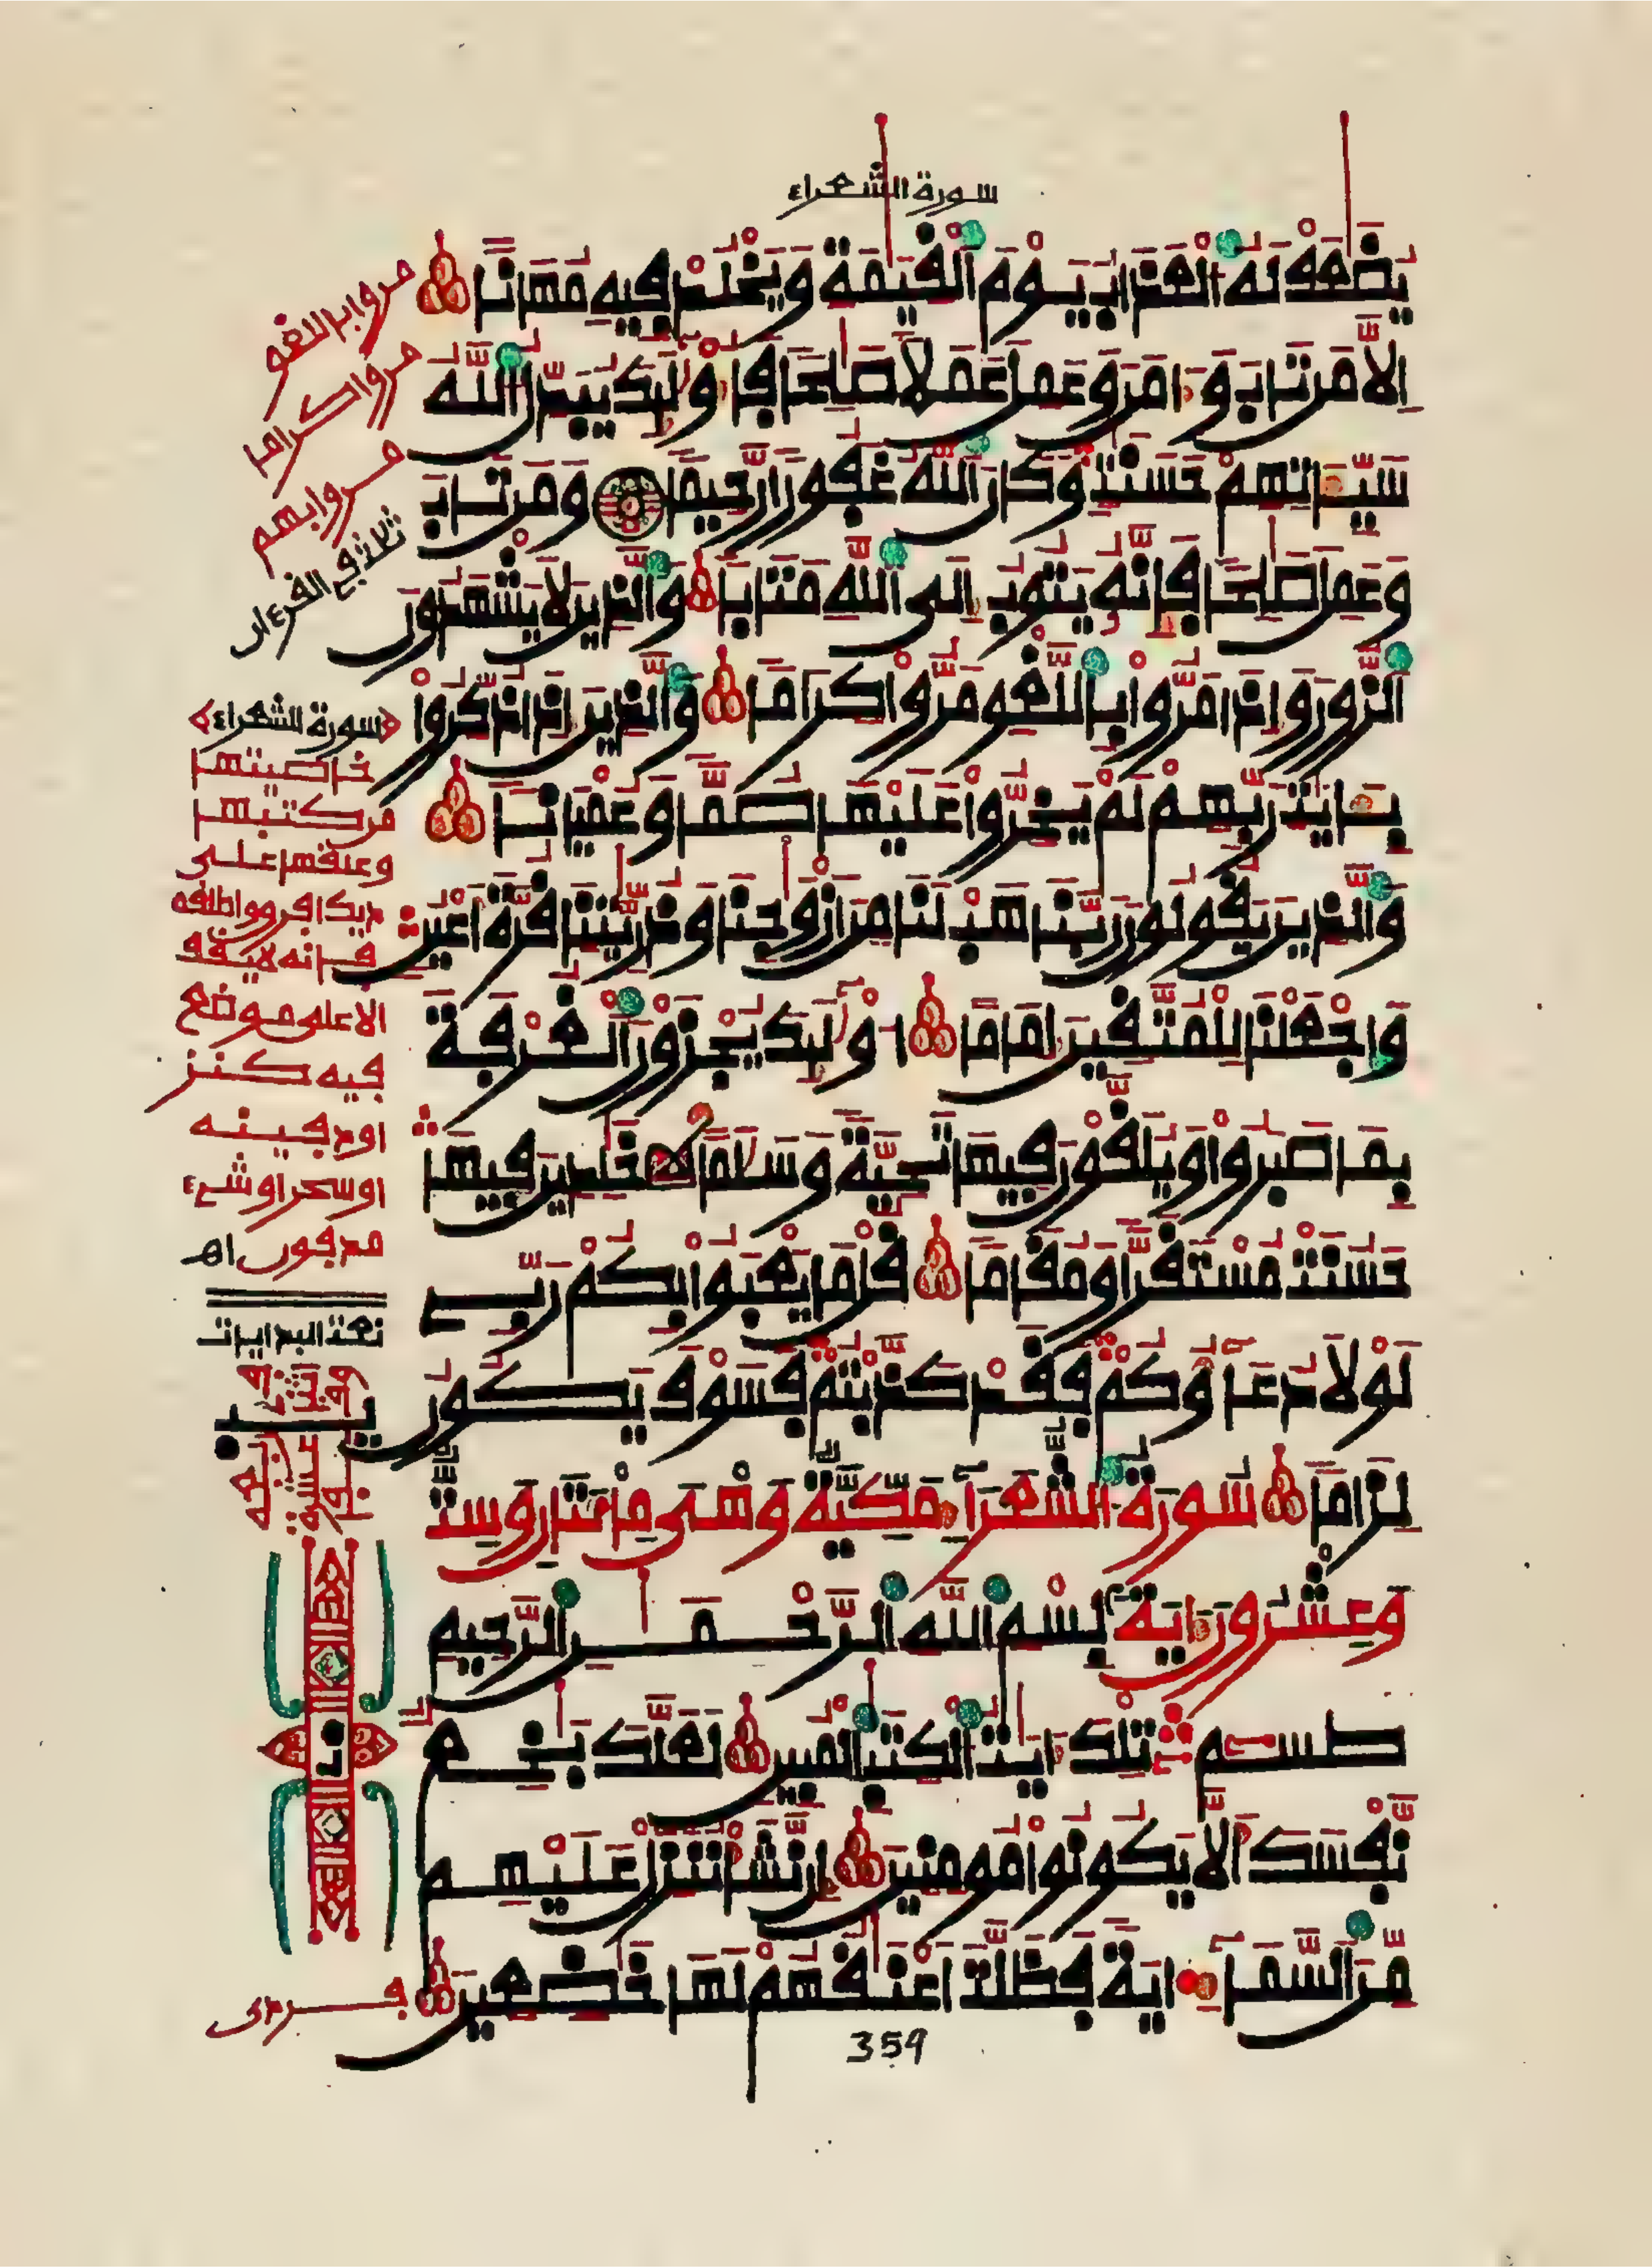 سورة الشعراء
يُضَٰعَفْ لَهُ اُلْعَذَابُ يَوْمَ اَلْقِيَٰمَةِ وَيَخْلُدْ فِيهِ مُهَانًا
اِلَّا مَن تَابَ وَءَامَنَ وَعَمِلَ عَمَلًا صَٰلِحًا فَأُوْلَٰٓئِكَ يُبَدِّلُ اُللَّهُ
سَيِّـَٔاتِهِمْ حَسَنَٰتٍ وَكَانَ اَللَّهُ غَفُورًا رَّحِيمًا وَمَن تَابَ
وَعَمِلَ صَٰلِحًا فَإِنَّهُ يَتُوبُ إِلَى اَللَّهِ مَتَابًا وَالَّذِينَ لَا يَشْهَدُونَ
اَلزُّورَ وَإِذَا مَرُّواْ بِاللَّغْوِ مَرُّواْ كِرَامًا وَالَّذِينَ إِذَا ذُكِّرُواْ
بِـَٔايَٰتِ رَبِّهِمْ لَمْ يَخِرُّواْ عَلَيْهَا صُمًّا وَعُمْيَانًا
وَالَّذِينَ يَقُولُونَ رَبَّنَا هَبْ لَنَا مِنْ أَزْوَٰجِنَا وَذُرِّيَّٰتِنَا قُرَّةَ أَعْيُنٍ
وَاجْعَلْنَا لِلْمُتَّقِينَ إِمَامًا أُوْلَٰٓئِكَ يُجْزَوْنَ اَلْغُرْفَةَ
بِمَا صَبَرُواْ وَيُلَقَّوْنَ فِيهَا تَحِيَّةً وَسَلَٰمًا خَٰلِدِينَ فِيهَا
حَسُنَتْ مُسْتَقَرًّا وَمُقَامًا قُلْ مَا يَعْبَؤُاْ بِكُمْ رَبِّے
لَوْلَا دُعَآؤُكُمْ فَقَدْ كَذَّبْتُمْ فَسَوْفَ يَكُونُ
لِزَامًا سُورَةُ الشُّعَرَآءِ مَكِّيَّةٌ وَهْىَ مِائَتَانِ وَسِتٌّ
وَعِشْرُونَ ءَايَةً بِسْمِ اِللَّهِ اِلرَّحْمَٰنِ اِلرَّحِيمِ
طسٓمٓ تِلْكَ ءَايَٰتُ اُلْكِتَٰبِ اِلْمُبِينِ لَعَلَّكَ بَٰخِعٌ
نَّفْسَكَ أَلَّا يَكُونُواْ مُومِنِينَ إِن نَّشَأْ نُنَزِّلْ عَلَيْهِم
مِّنَ اَلسَّمَآءِ ايَةً فَظَلَّتَ اَعْنَٰقُهُمْ لَهَا خَٰضِعِينَ
مروا باللغو
مروا كراما
مروا بهم
ثلاث في القرءان
سورة الشعراء
خاصيتها
من كتبها
وعلقها على
ديك افرق واطلقه
فإنه لا يقف
الا على موضع
فيه كنز
او دفينه
او سحر او شيء
مدفون اهـ
359